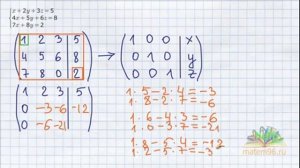 x+2y+3z=5
4x+5y+6z=8
7x+8y=2
1 2 3 5
4 5 6 8
7 8 0 2
1 0 0 x
0 1 0 y
0 0 1 z
1 2 3 5
0 -3 -6 -12
0 -6 -21
1·5-2·4=-3
1·8-2·7=-6
1·6-4·3=-6
1·0-3·7=-21
1·8-5·4=-12
1·2-5·7=-3
matem96.ru